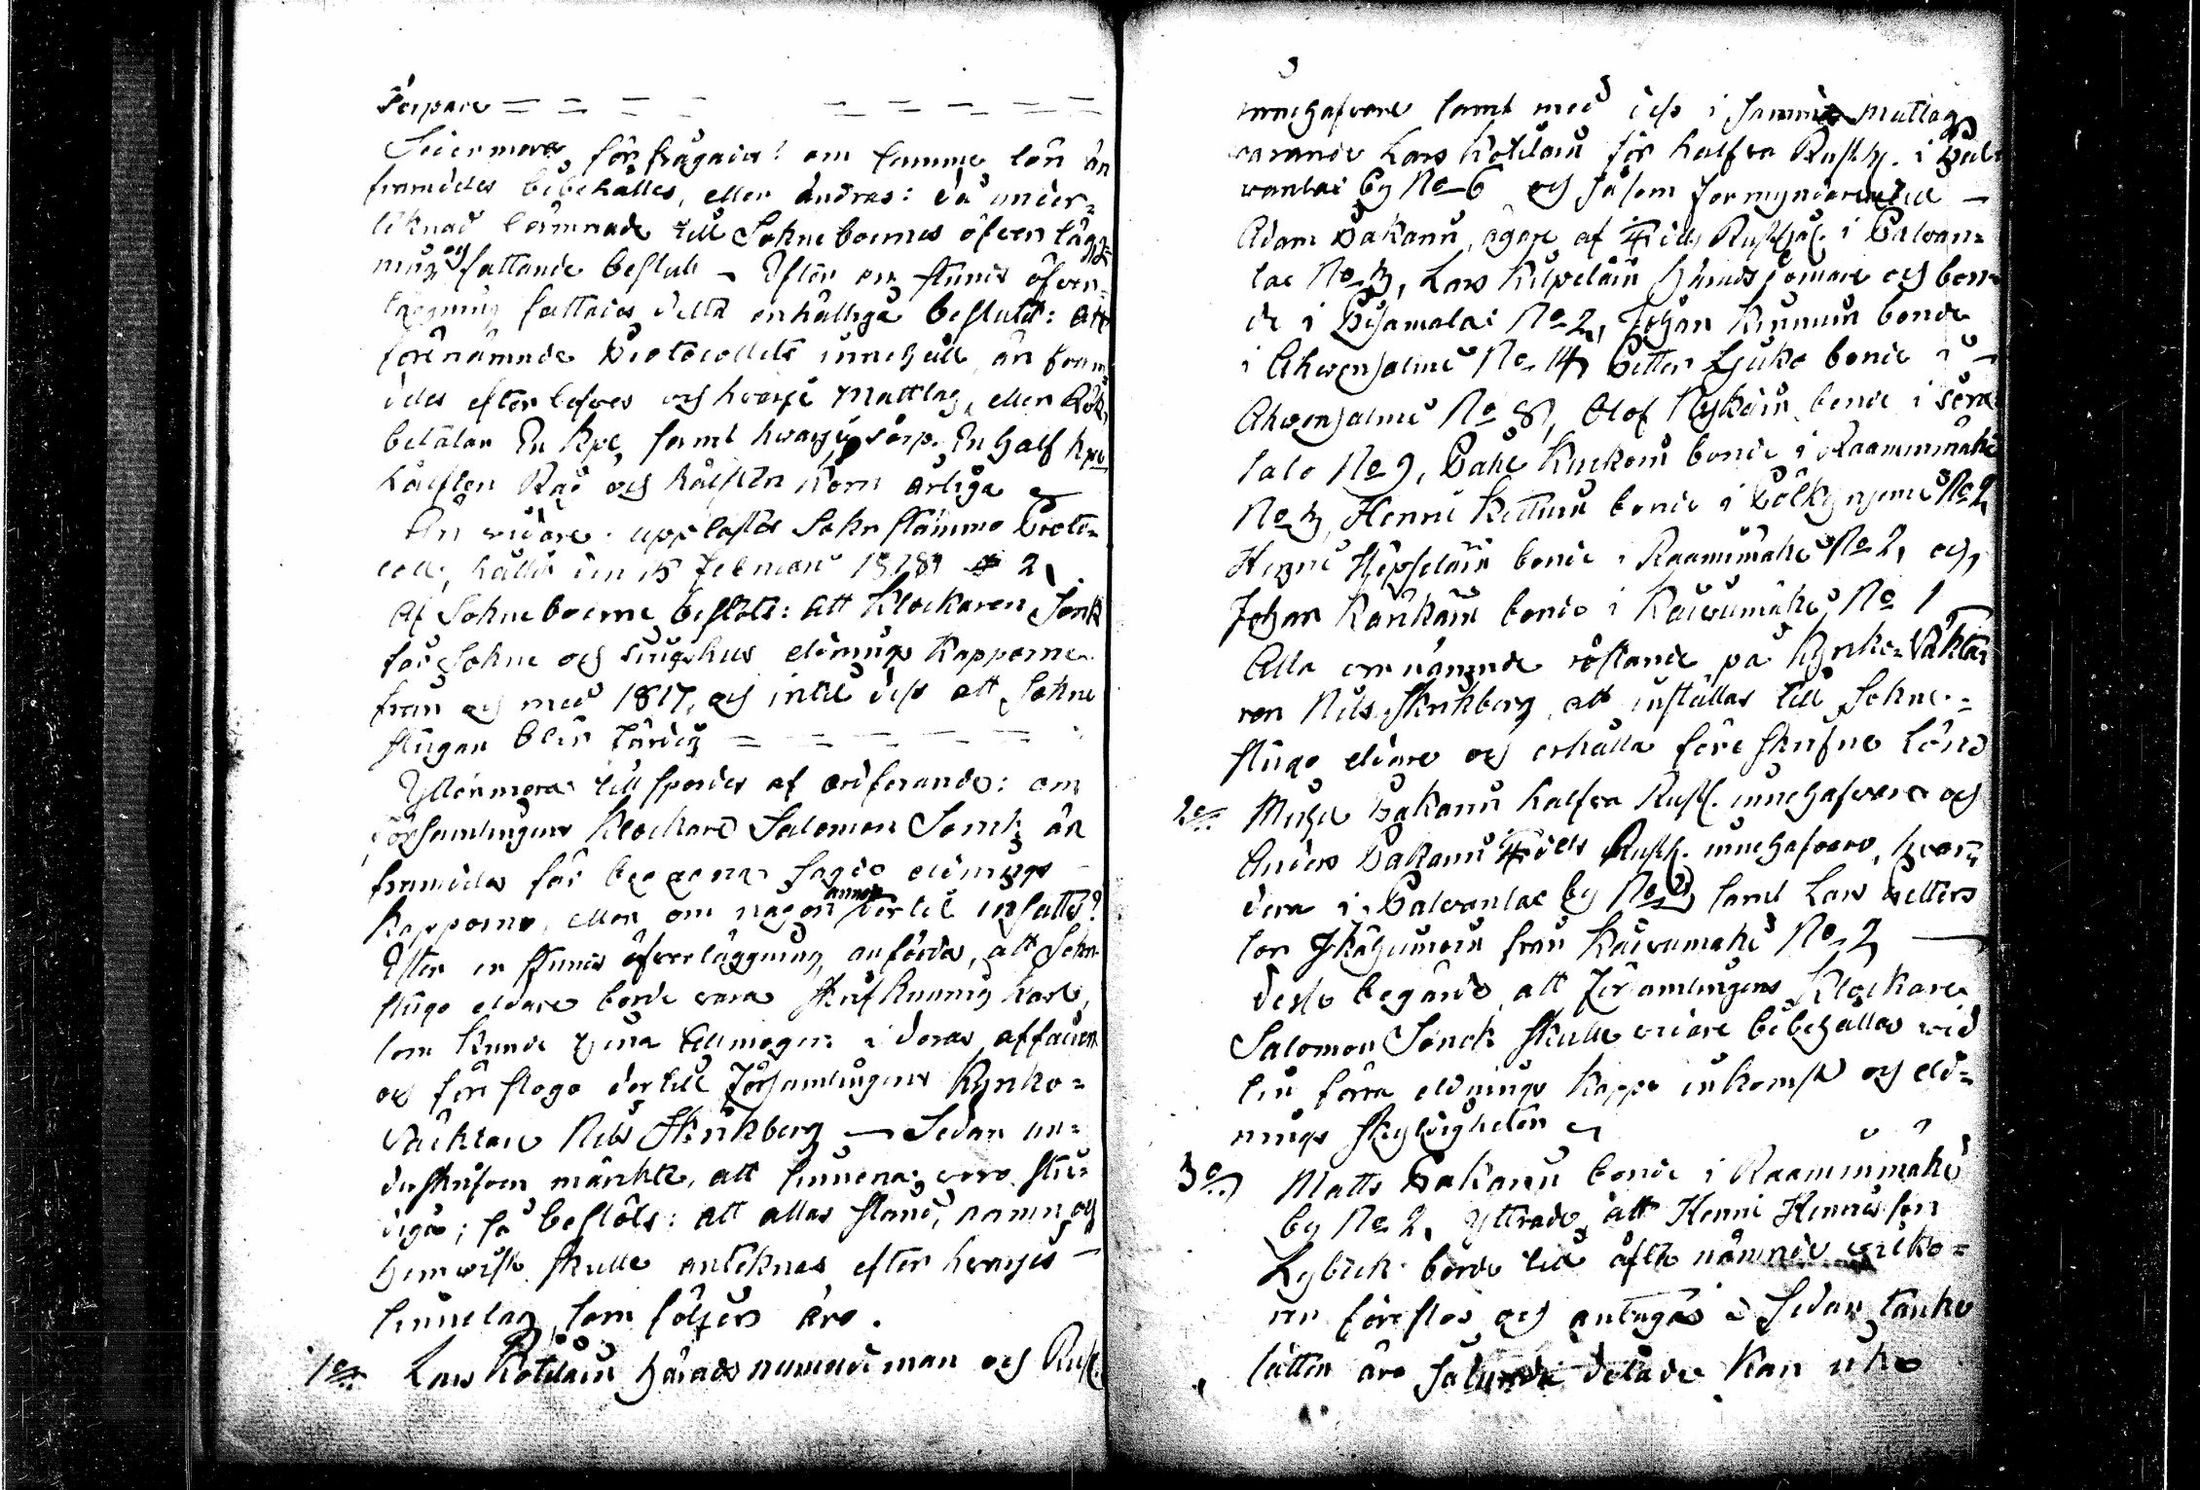 sörpare = = = = = = = = = =
Sedermera förfrågades: om samma lön än
framdeles bibehålles, eller ändras: då under-
teknad lämnade till Sokneboernes öfverlägg-
ning och fattande beslut – Efter en stunds öfver-
läggning fattades detta enhälliga beslutet: att
förenämnde Protocollets innehåll än fram-
deles efterlefves och hvarje Mattlag, eller Rök,
betalar En Kpe, samt hvarje sörp. En half Kpe
hälften Råg och hälften Korn årliga
Än vidare upplästes Sokn stämmo Proto-
coll, hållit den 15 Februari 1818, § 2,
Af Sokneboerne beslöts: att Klockaren Sonck
får Sokne och tingshus eldnings Kapporne
från och med 1817, och intill dess att Sokne
stugan blir färdig = = = = =
Yttermera tillspordes af ordförande: om
Församlingens Klockare Salomon Sonck än
framdeles får begagna sagde eldnings
Kapporne, eller om någon annan dertil insattes?
Efter en stunds öfverläggning, anfördes, att Sokn-
stugo eldare borde vara skrifkunnig karl,
som kunde tjena allmogen i deras affairer
och föreslogo dertill Församlingens Kyrko-
väktare Nils Skrikberg — Sedan un-
derskrifven märkte, att sinnena voro stri-
diga; så beslöts: att allas stånd, namn och
hemvist skulle anteknas efter hvarjes –
sinnelag, som följer äro.
1o Lars Kötiläin häradsnämndeman och Rusth.
innehafvare samt med dess i samma Mattlag
varande Lars Kötiläin för halfva Rusth. i Pal-
vanlax by No 6 och såsom förmyndare till –
Adam Pakarin, ägare af ¼dels Rusthål. i Palvan-
lax No 3, Lars Kilpeläin häradsdomare och bon-
de i Pihamalax No 2, Johan Kinnuin bonde
i Ahvensalmi No 14, Petter Ljuko bonde i –
Ahvensalmi No 8, Olof Nykäin bonde i Sora-
salo No 9, Påhl Kuckoin bonde i Raaminmäki
No 3, Henric Kettuin bonde i Pölkynjemi No 2,
Henric Hypeläin bonde i Raaminmäki No 2, och,
Johan Kankain bonde i Kaivumäki No 1
Alla omnämnde röstande på Kyrko Väkta-
ren Nils Skrikberg, att inställas till Sokne-
stugo eldare och erhålla föreskrifne löned
2o Michel Pakarin halfva Rusth. innehafvare och
Anders Pakarin ¼dels Rusth. innehafvare, hvar-
dera i Palvanlax by No 3, samt Lars Petters
son Ikäheimoin från Kaivumäki No 2 —
desse begärde att Församlingens Klockare
Salomon Sonck skulle vidare bibehållas vid
sin förra eldnings kapp inkomst och eld-
nings skyldigheten
3o Matts Pakarin bonde i Raaminmäki
by No 2, yttrade, att Henric Henricsson
Lybeck borde till åfta nämnde vilko-
ren föreslås och antagas. Sedan tanke
sätten äro sålunde delade kan icke